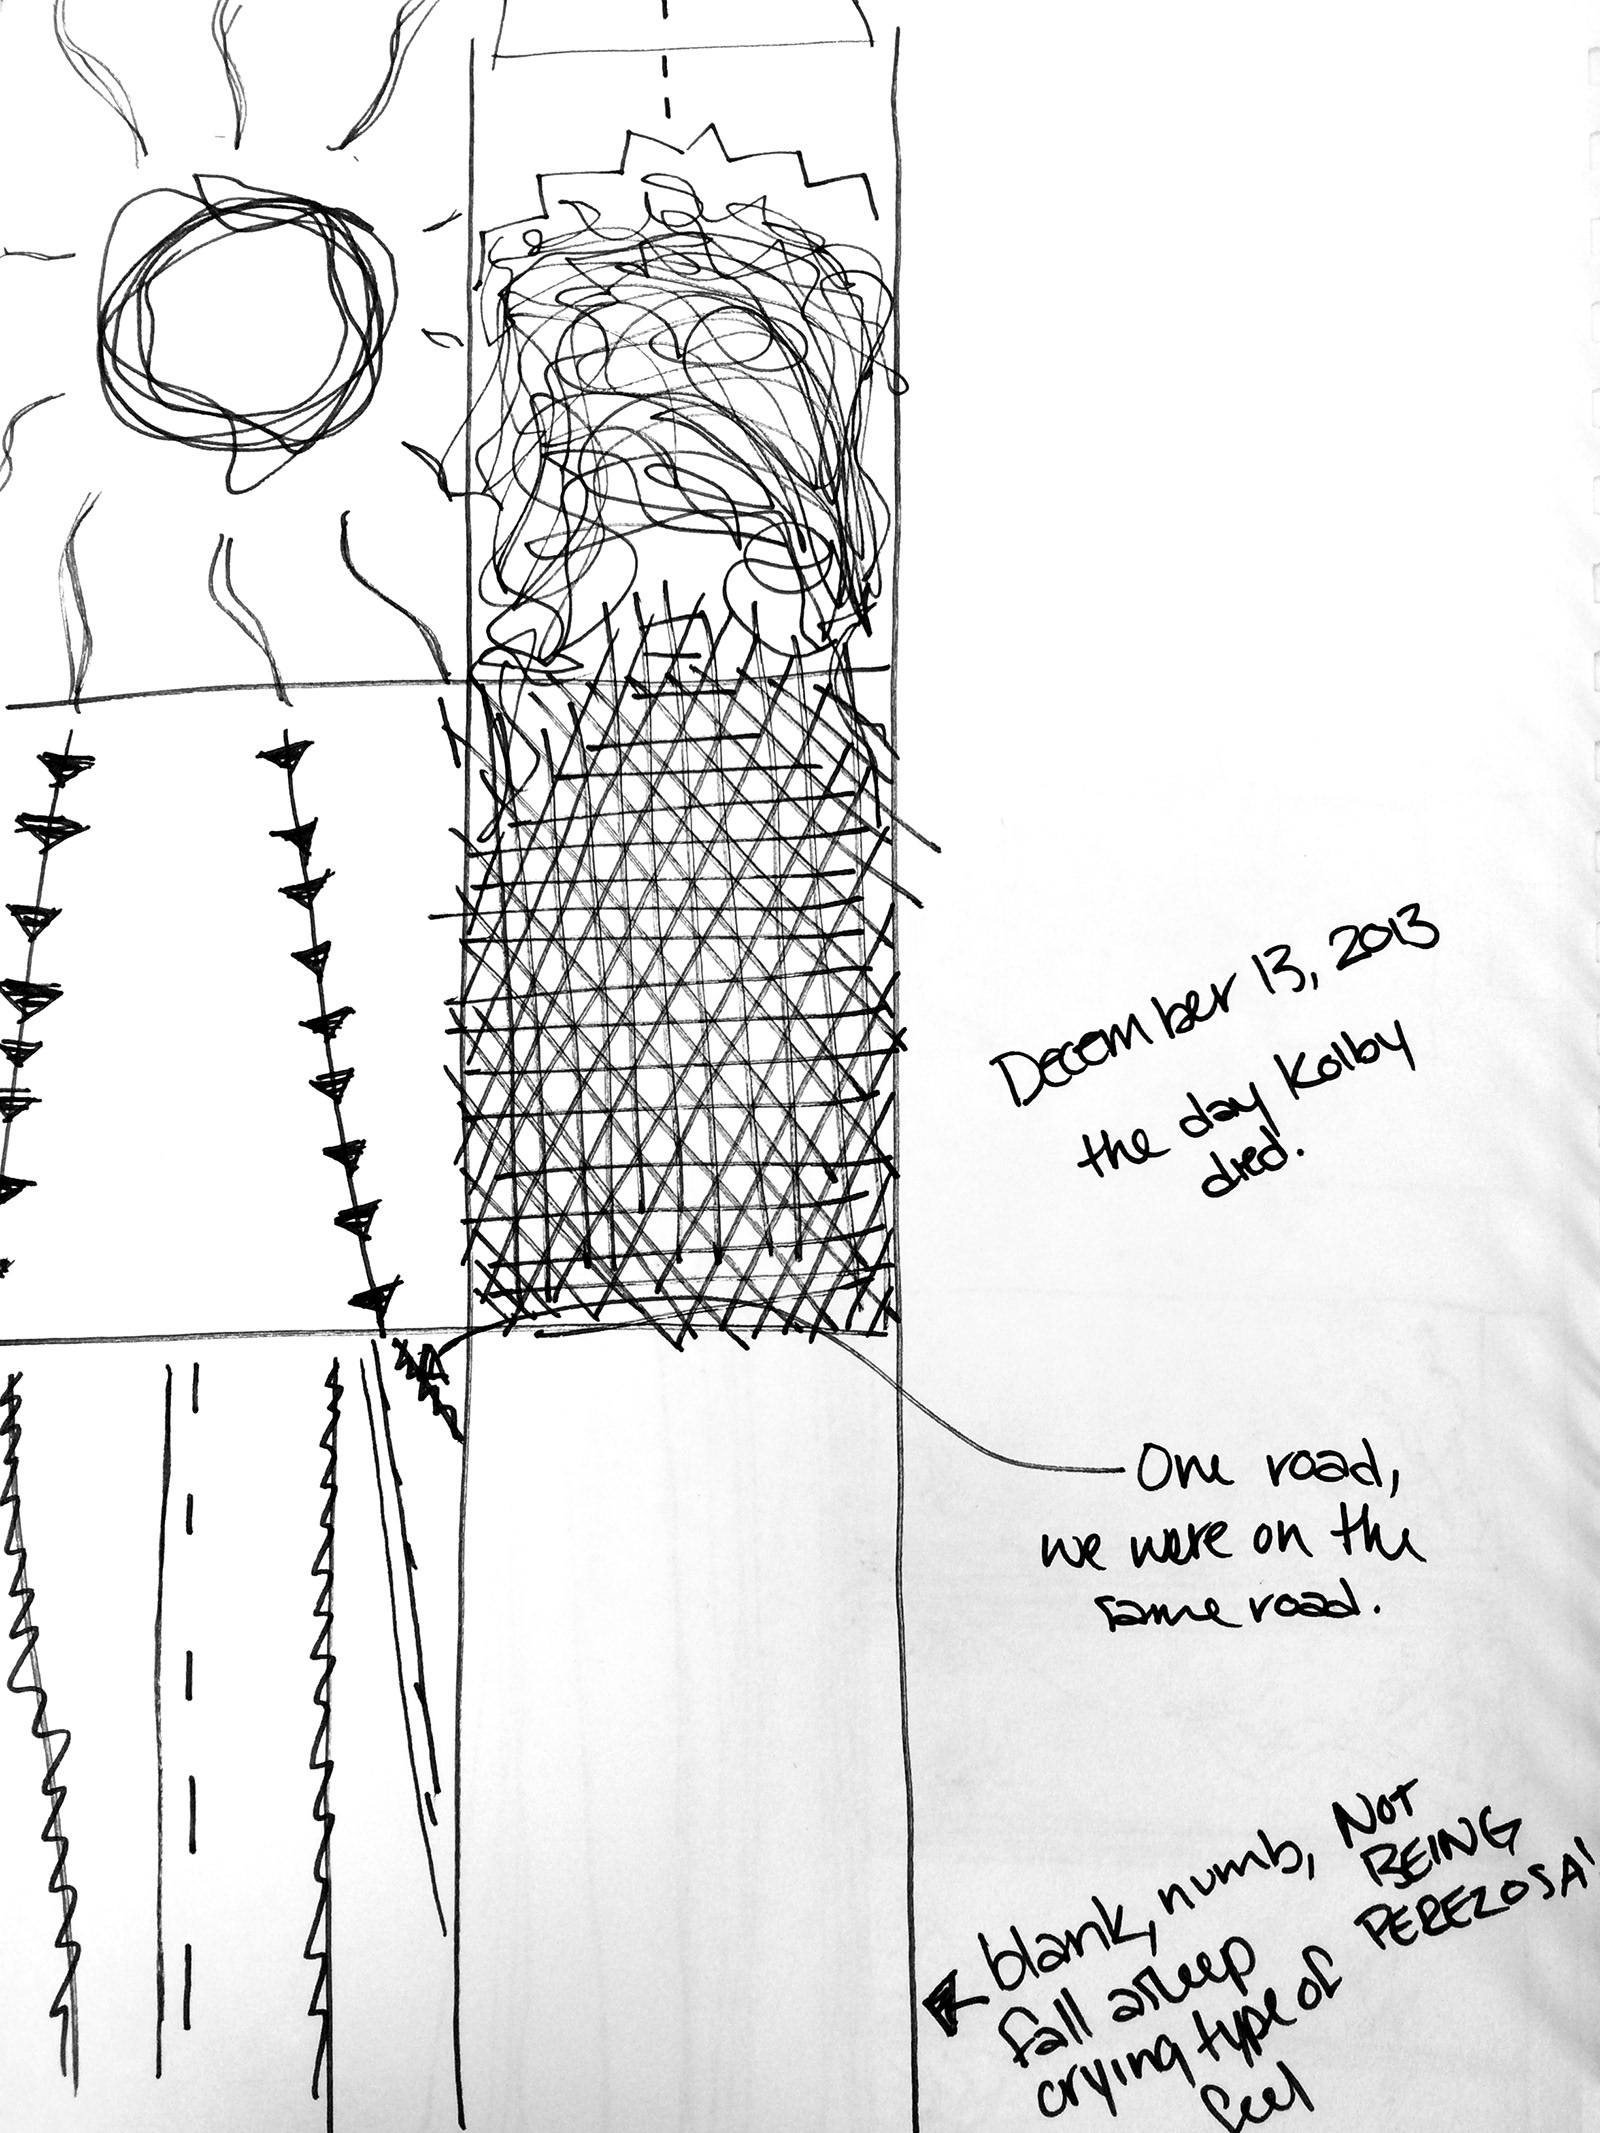 December 13, 2013
the day Kolby
died.
One road,
we were on the
same road.
blank, numb, NOT
BEING
PEREZOSA!
fall asleep
crying type of
feel